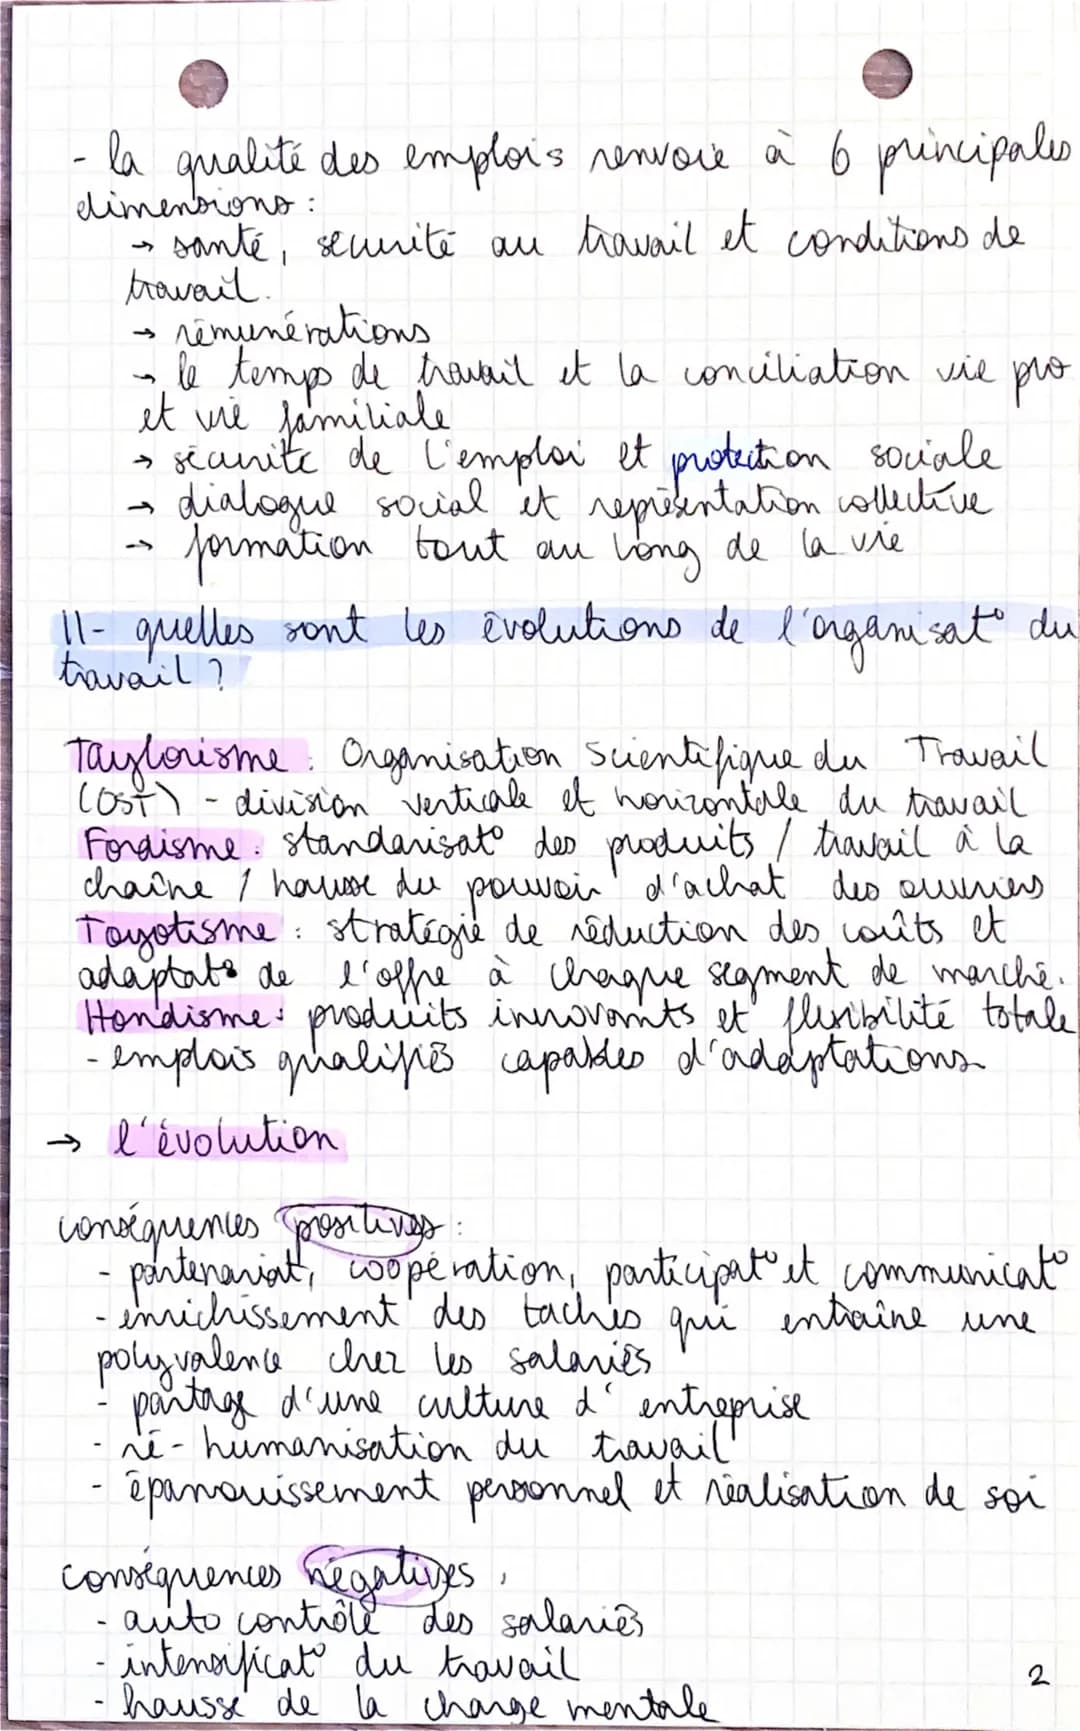 - la qualité des emplois renvoie à 6 principales
dimensions :
→ santé, sécurité au travail et conditions de
travail.
→ rémunérations
→ le temps de travail et la conciliation vie pro
et vie familiale
→ sécurité de l'emploi et protection sociale
→ dialogue social et représentation collective
→ formation tout au long de la vie
II- quelles sont les évolutions de l'organisat° du
travail ?
Taylorisme : Organisation Scientifique du Travail
(OST) - division verticale et horizontale du travail
Fordisme : standarisat° des produits / travail à la
chaîne / hausse du pouvoir d'achat des ouvriers
Toyotisme : stratégie de réduction des coûts et
adaptat° de l'offre à chaque segment de marché.
Hondisme : produits innovants et flexibilité totale
- emplois qualifiés capables d'adaptations
→ l'évolution
conséquences positives :
- partenariat, coopération, participat° et communicat°
- enrichissement des taches qui entraîne une
polyvalence chez les salariés
- partage d'une culture d'entreprise
- ré-humanisation du travail
- épanouissement personnel et réalisation de soi
conséquences négatives,
- auto contrôle des salariés
- intensificat° du travail
- hausse de la charge mentale
2